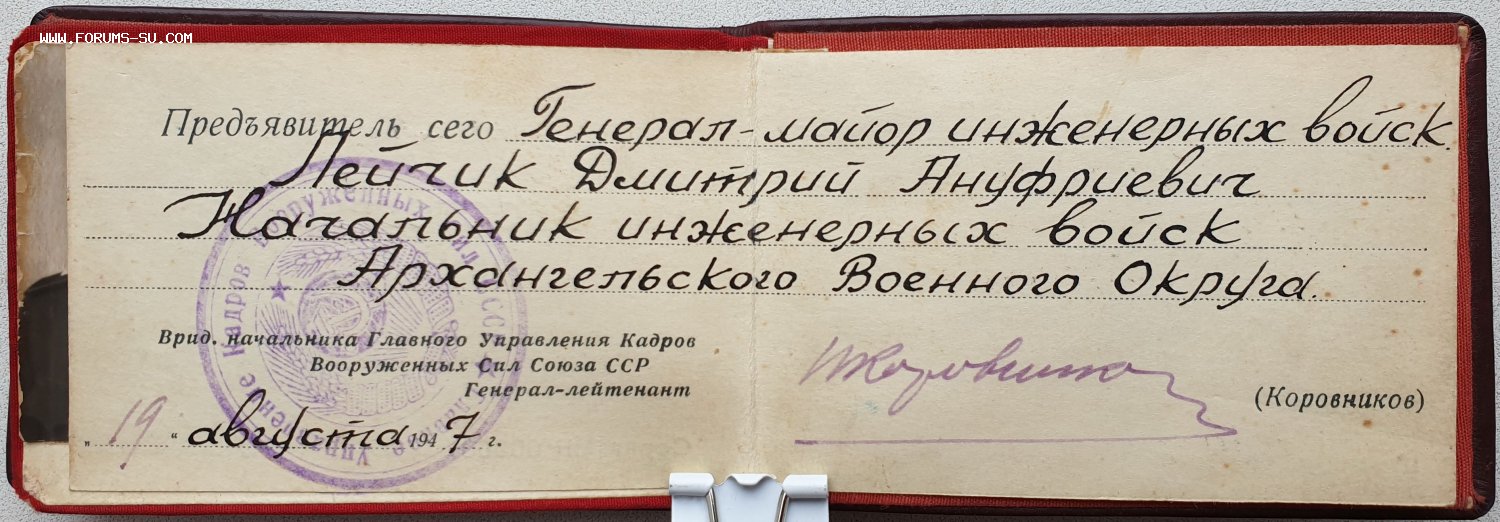 WWW.FORUMS-SU.COM
Предъявитель сего Генерал-майор инженерных войск.
Пейчик Дмитрий Ануфриевич
Начальник инженерных войск
Архангельского Военного Округа.
Врид. начальника Главного Управления Кадров
Вооруженных Сил Союза ССР
Генерал-лейтенант
(Коровников)
„ 19 “ августа 1947 г.
Главное Управление Кадров Вооруженных Сил СССР